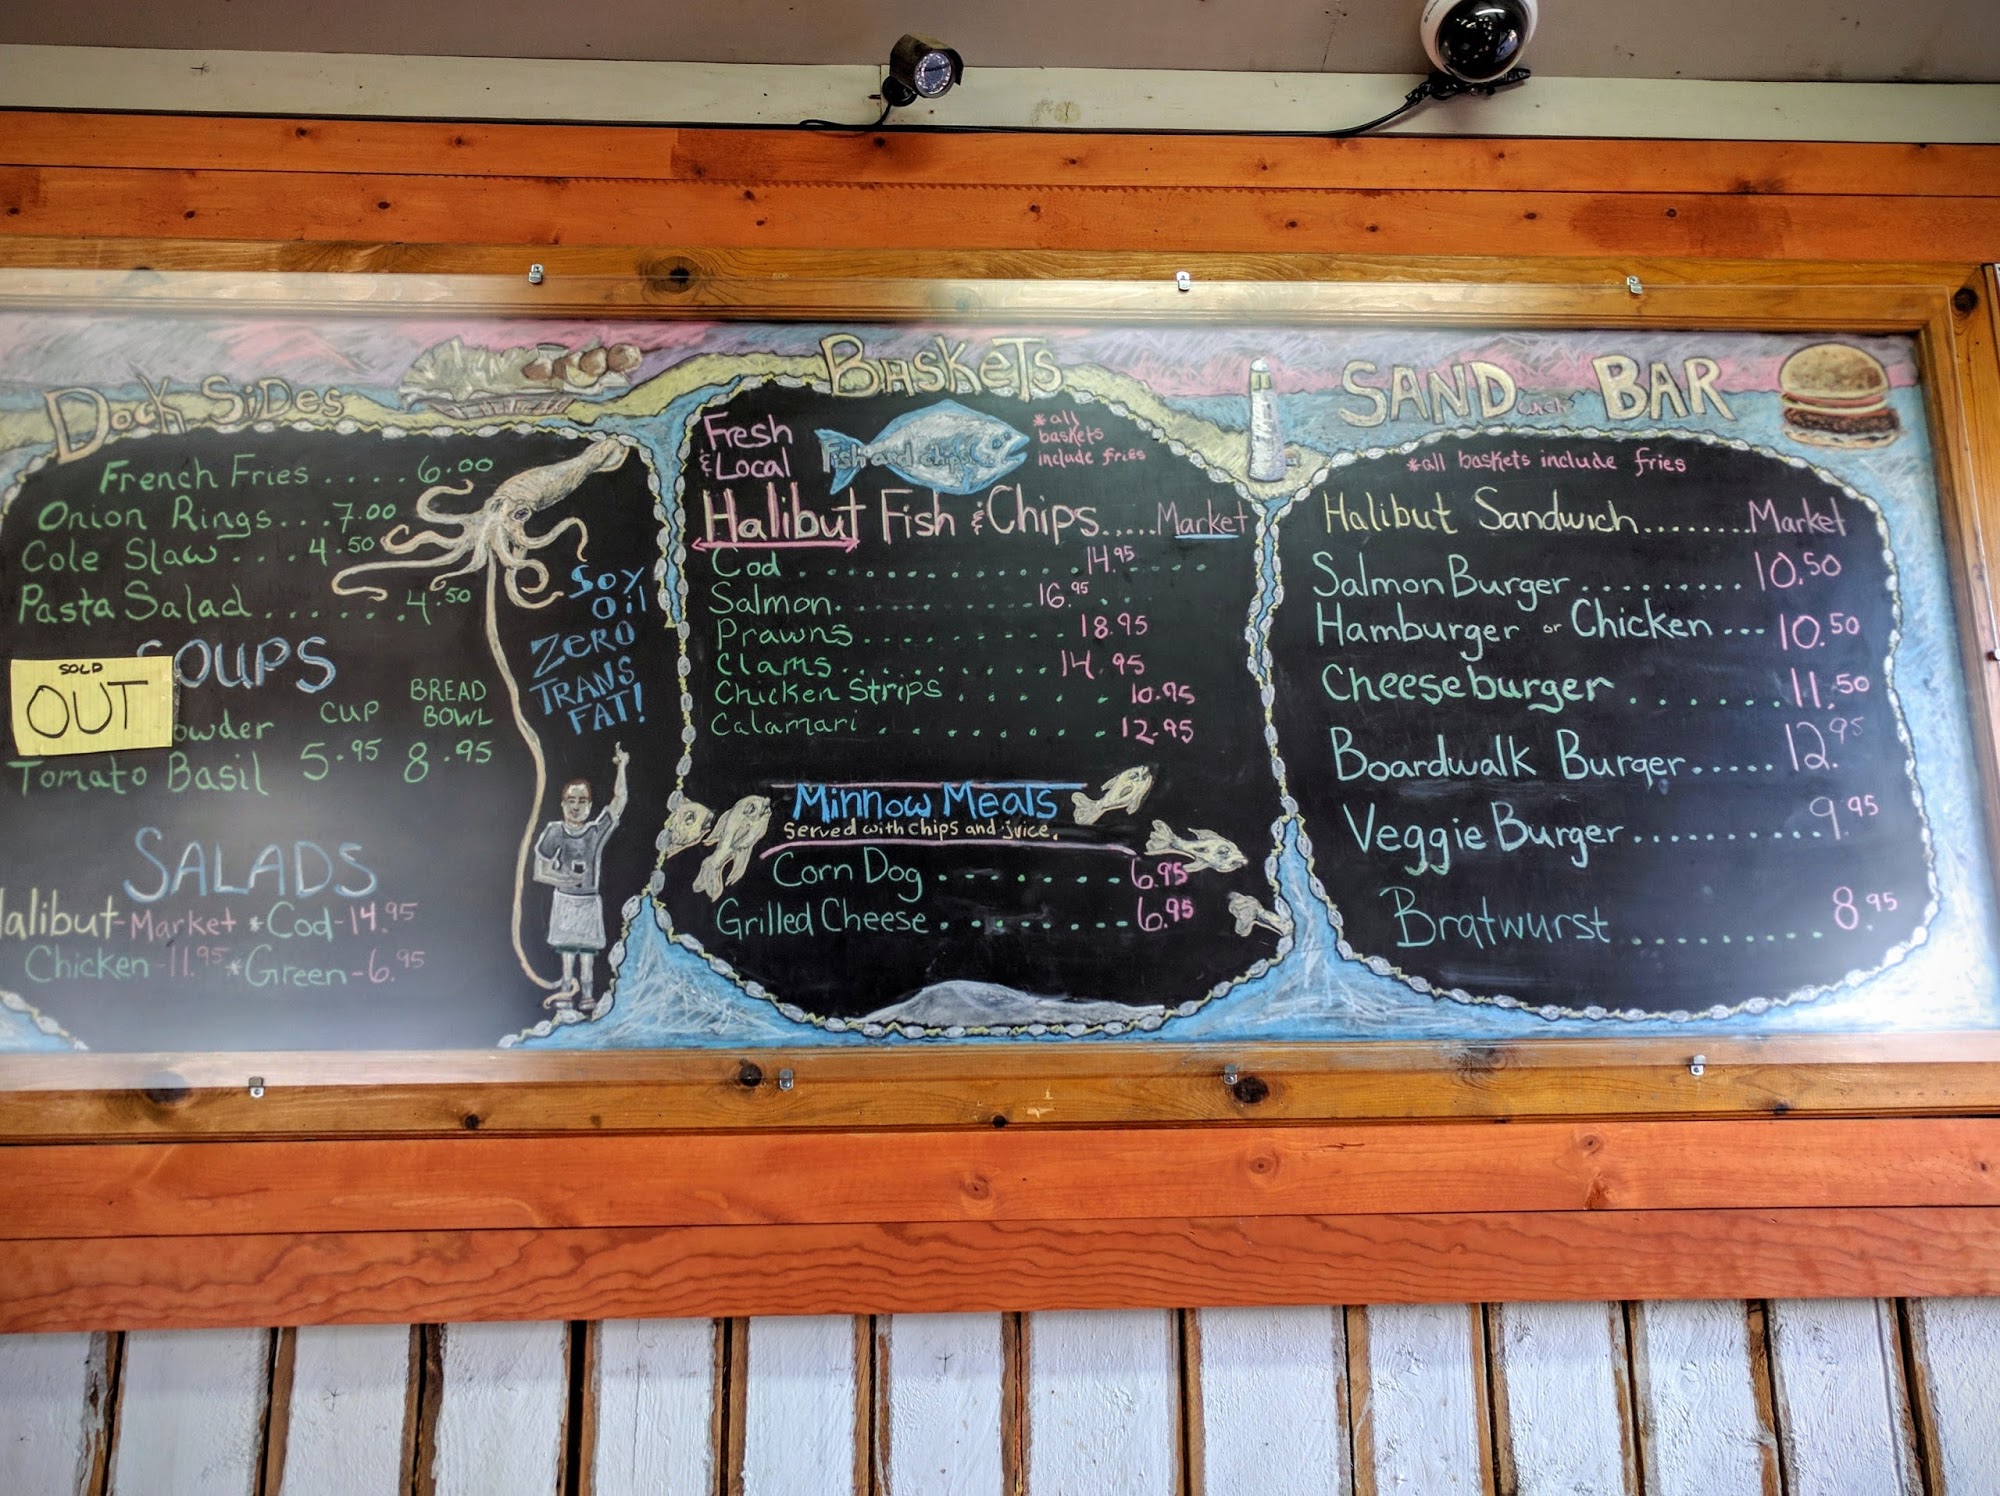 Dock Sides
French Fries .... 6.00
Onion Rings... 7.00
Cole Slaw ... 4.50
Pasta Salad ...... 4.50
SOUPS
SOLD
OUT
CUP
BREAD
BOWL
owder
Tomato Basil 5.95 8.95
SOY
OIL
ZERO
TRANS
FAT!
SALADS
Halibut-Market *Cod-14.95
Chicken-11.95 *Green-6.95
BASKETS
Fresh
& Local
Fish and chips
*all
baskets
include fries
Halibut Fish & Chips...... Market
Cod ............... 14.95
Salmon........... 16.95
Prawns .......... 18.95
Clams.......... 14.95
Chicken Strips ..... 10.95
Calamari ........ 12.95
Minnow Meals
Served with chips and juice.
Corn Dog ....... 6.95
Grilled Cheese ........ 6.95
SANDwich BAR
*all baskets include fries
Halibut Sandwich........Market
Salmon Burger ......... 10.50
Hamburger or Chicken --- 10.50
Cheeseburger ....... 11.50
Boardwalk Burger..... 12.95
Veggie Burger .......... 9.95
Bratwurst .......... 8.95